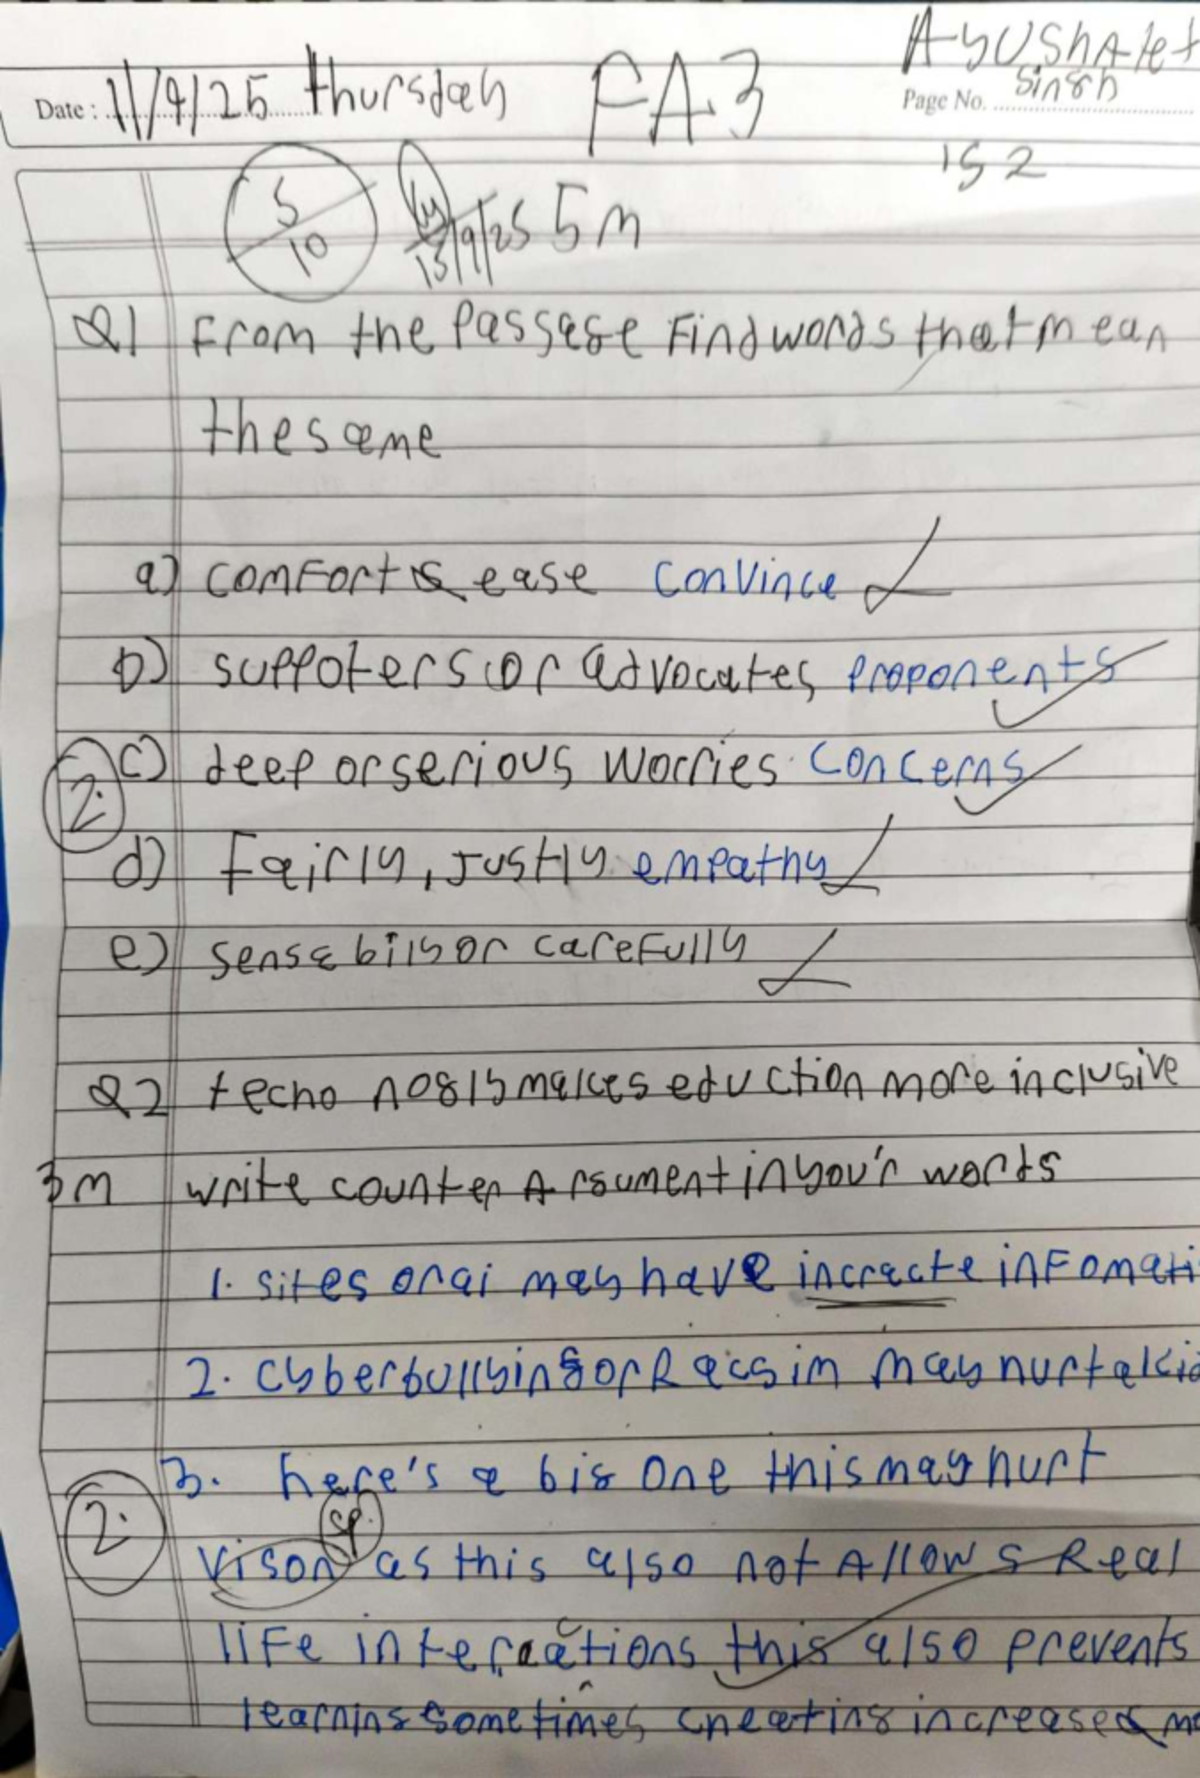 Ayushalet
Date : 11/9/25 thursday FA3
Page No. singh
152
5/10 13/9/25 5m
Q1 From the Passage Find words that mean
the same
a) comfort & ease convince
b) suppoters or advocates proponents
c) deep or serious worries concerns
2.
d) Fairly, Justly empathy
e) sensebily or carefully
Q2 techo nogly makes eduction more inclusive
3m write counter Argument in your words
1. sites or ai may have incracte infomati
2. Cyberbullying or Racsim may hurt a kid
3. here's a big one this may hurt
2. sp.
Vison as this also not Allows Real
life interactions this also prevents
learning sometimes cheating increases mo